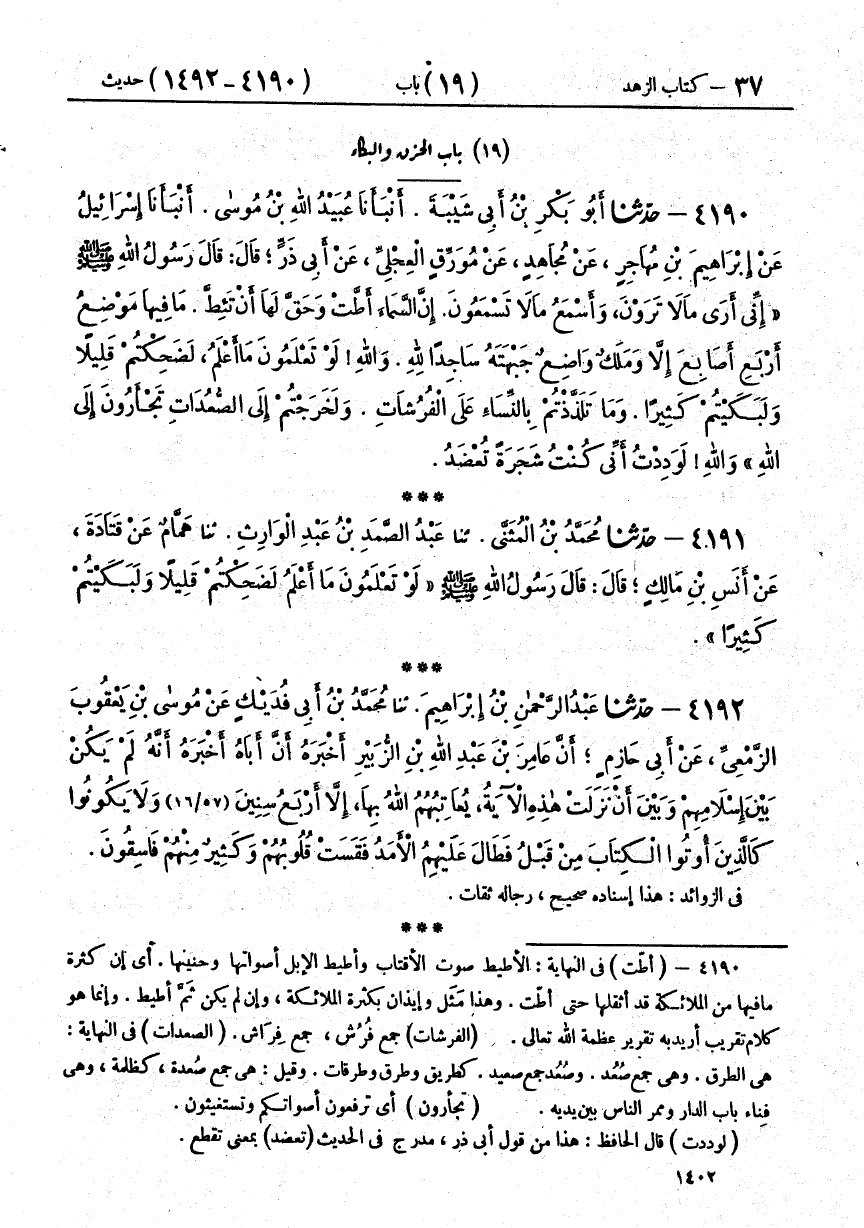 ٣٧ – كتاب الزهد (١٩) باب (٤١٩٠ – ١٤٩٢) حديث
(١٩) باب الحزن والبكاء
٤١٩٠ – حَدَّثنا أَبُو بَكْرِ بْنُ أَبِي شَيْبَةَ . أَنْبَأَنَا عُبَيْدُ اللهِ بْنُ مُوسَى . أَنْبَأَنَا إِسْرَائِيلُ
عَنْ إِبْرَاهِيمَ بْنِ مُهَاجِرٍ ، عَنْ مُجَاهِدٍ ، عَنْ مُوَرِّقٍ الْعِجْلِيِّ ، عَنْ أَبِي ذَرٍّ ؛ قَالَ : قَالَ رَسُولُ اللهِ ﷺ
« إِنِّي أَرَى مَالَا تَرَوْنَ ، وَأَسْمَعُ مَالَا تَسْمَعُونَ . إِنَّ السَّمَاءَ أَطَّتْ وَحَقَّ لَهَا أَنْ تَئِطَّ . مَافِيهَا مَوْضِعُ
أَرْبَعِ أَصَابِعَ إِلَّا وَمَلَكٌ وَاضِعٌ جَبْهَتَهُ سَاجِدًا لِلهِ . وَاللهِ ! لَوْ تَعْلَمُونَ مَاأَعْلَمُ ، لَضَحِكْتُمْ قَلِيلًا
وَلَبَكَيْتُمْ كَثِيرًا . وَمَا تَلَذَّذْتُمْ بِالنِّسَاءِ عَلَى الْفُرُشَاتِ . وَلَخَرَجْتُمْ إِلَى الصُّعُدَاتِ تَجْأَرُونَ إِلَى
اللهِ » وَاللهِ ! لَوَدِدْتُ أَنِّي كُنْتُ شَجَرَةً تُعْضَدُ .
***
٤١٩١ – حَدَّثنا مُحَمَّدُ بْنُ الْمُثَنَّى . ثنا عَبْدُ الصَّمَدِ بْنُ عَبْدِ الْوَارِثِ . ثنا هَمَّامٌ عَنْ قَتَادَةَ ،
عَنْ أَنَسِ بْنِ مَالِكٍ ؛ قَالَ : قَالَ رَسُولُ اللهِ ﷺ « لَوْ تَعْلَمُونَ مَا أَعْلَمُ لَضَحِكْتُمْ قَلِيلًا وَلَبَكَيْتُمْ
كَثِيرًا » .
***
٤١٩٢ – حَدَّثنا عَبْدُ الرَّحْمٰنِ بْنُ إِبْرَاهِيمَ . ثنا مُحَمَّدُ بْنُ أَبِي فُدَيْكٍ عَنْ مُوسَى بْنِ يَعْقُوبَ
الزَّمْعِيِّ ، عَنْ أَبِي حَازِمٍ ؛ أَنَّ عَامِرَ بْنَ عَبْدِ اللهِ بْنِ الزُّبَيْرِ أَخْبَرَهُ أَنَّ أَبَاهُ أَخْبَرَهُ أَنَّهُ لَمْ يَكُنْ
بَيْنَ إِسْلَامِهِمْ وَبَيْنَ أَنْ نَزَلَتْ هٰذِهِ الْآيَةُ ، يُعَاتِبُهُمُ اللهُ بِهَا ، إِلَّا أَرْبَعُ سِنِينَ (١٦/٥٧) وَلَا يَكُونُوا
كَالَّذِينَ أُوتُوا الْكِتَابَ مِنْ قَبْلُ فَطَالَ عَلَيْهِمُ الْأَمَدُ فَقَسَتْ قُلُوبُهُمْ وَكَثِيرٌ مِنْهُمْ فَاسِقُونَ .
فى الزوائد : هذا إسناده صحيح ، رجاله ثقات .
***
٤١٩٠ – (أطّت) فى النهاية : الأطيط صوت الأقتاب وأطيط الإبل أصواتها وحنينها . أى إن كثرة
مافيها من الملائكة قد أثقلها حتى أطت . وهذا مَثَل وإيذان بكثرة الملائكة ، وإن لم يكن ثَمَّ أطيط . وإنما هو
كلام تقريب أريد به تقرير عظمة الله تعالى . (الفرشات) جمع فُرُش ، جمع فِراش . (الصعدات) فى النهاية :
هى الطرق . وهى جمع صُعُد . وصُعُد جمع صعيد . كطريق وطرق وطرقات . وقيل : هى جمع صُعدة ، كظلمة ، وهى
فناء باب الدار وممر الناس بين يديه . (تجأرون) أى ترفعون أصواتكم وتستغيثون .
(لوددت) قال الحافظ : هذا من قول أبى ذر ، مدرج فى الحديث (تعضد) بمعنى تقطع .
١٤٠٢